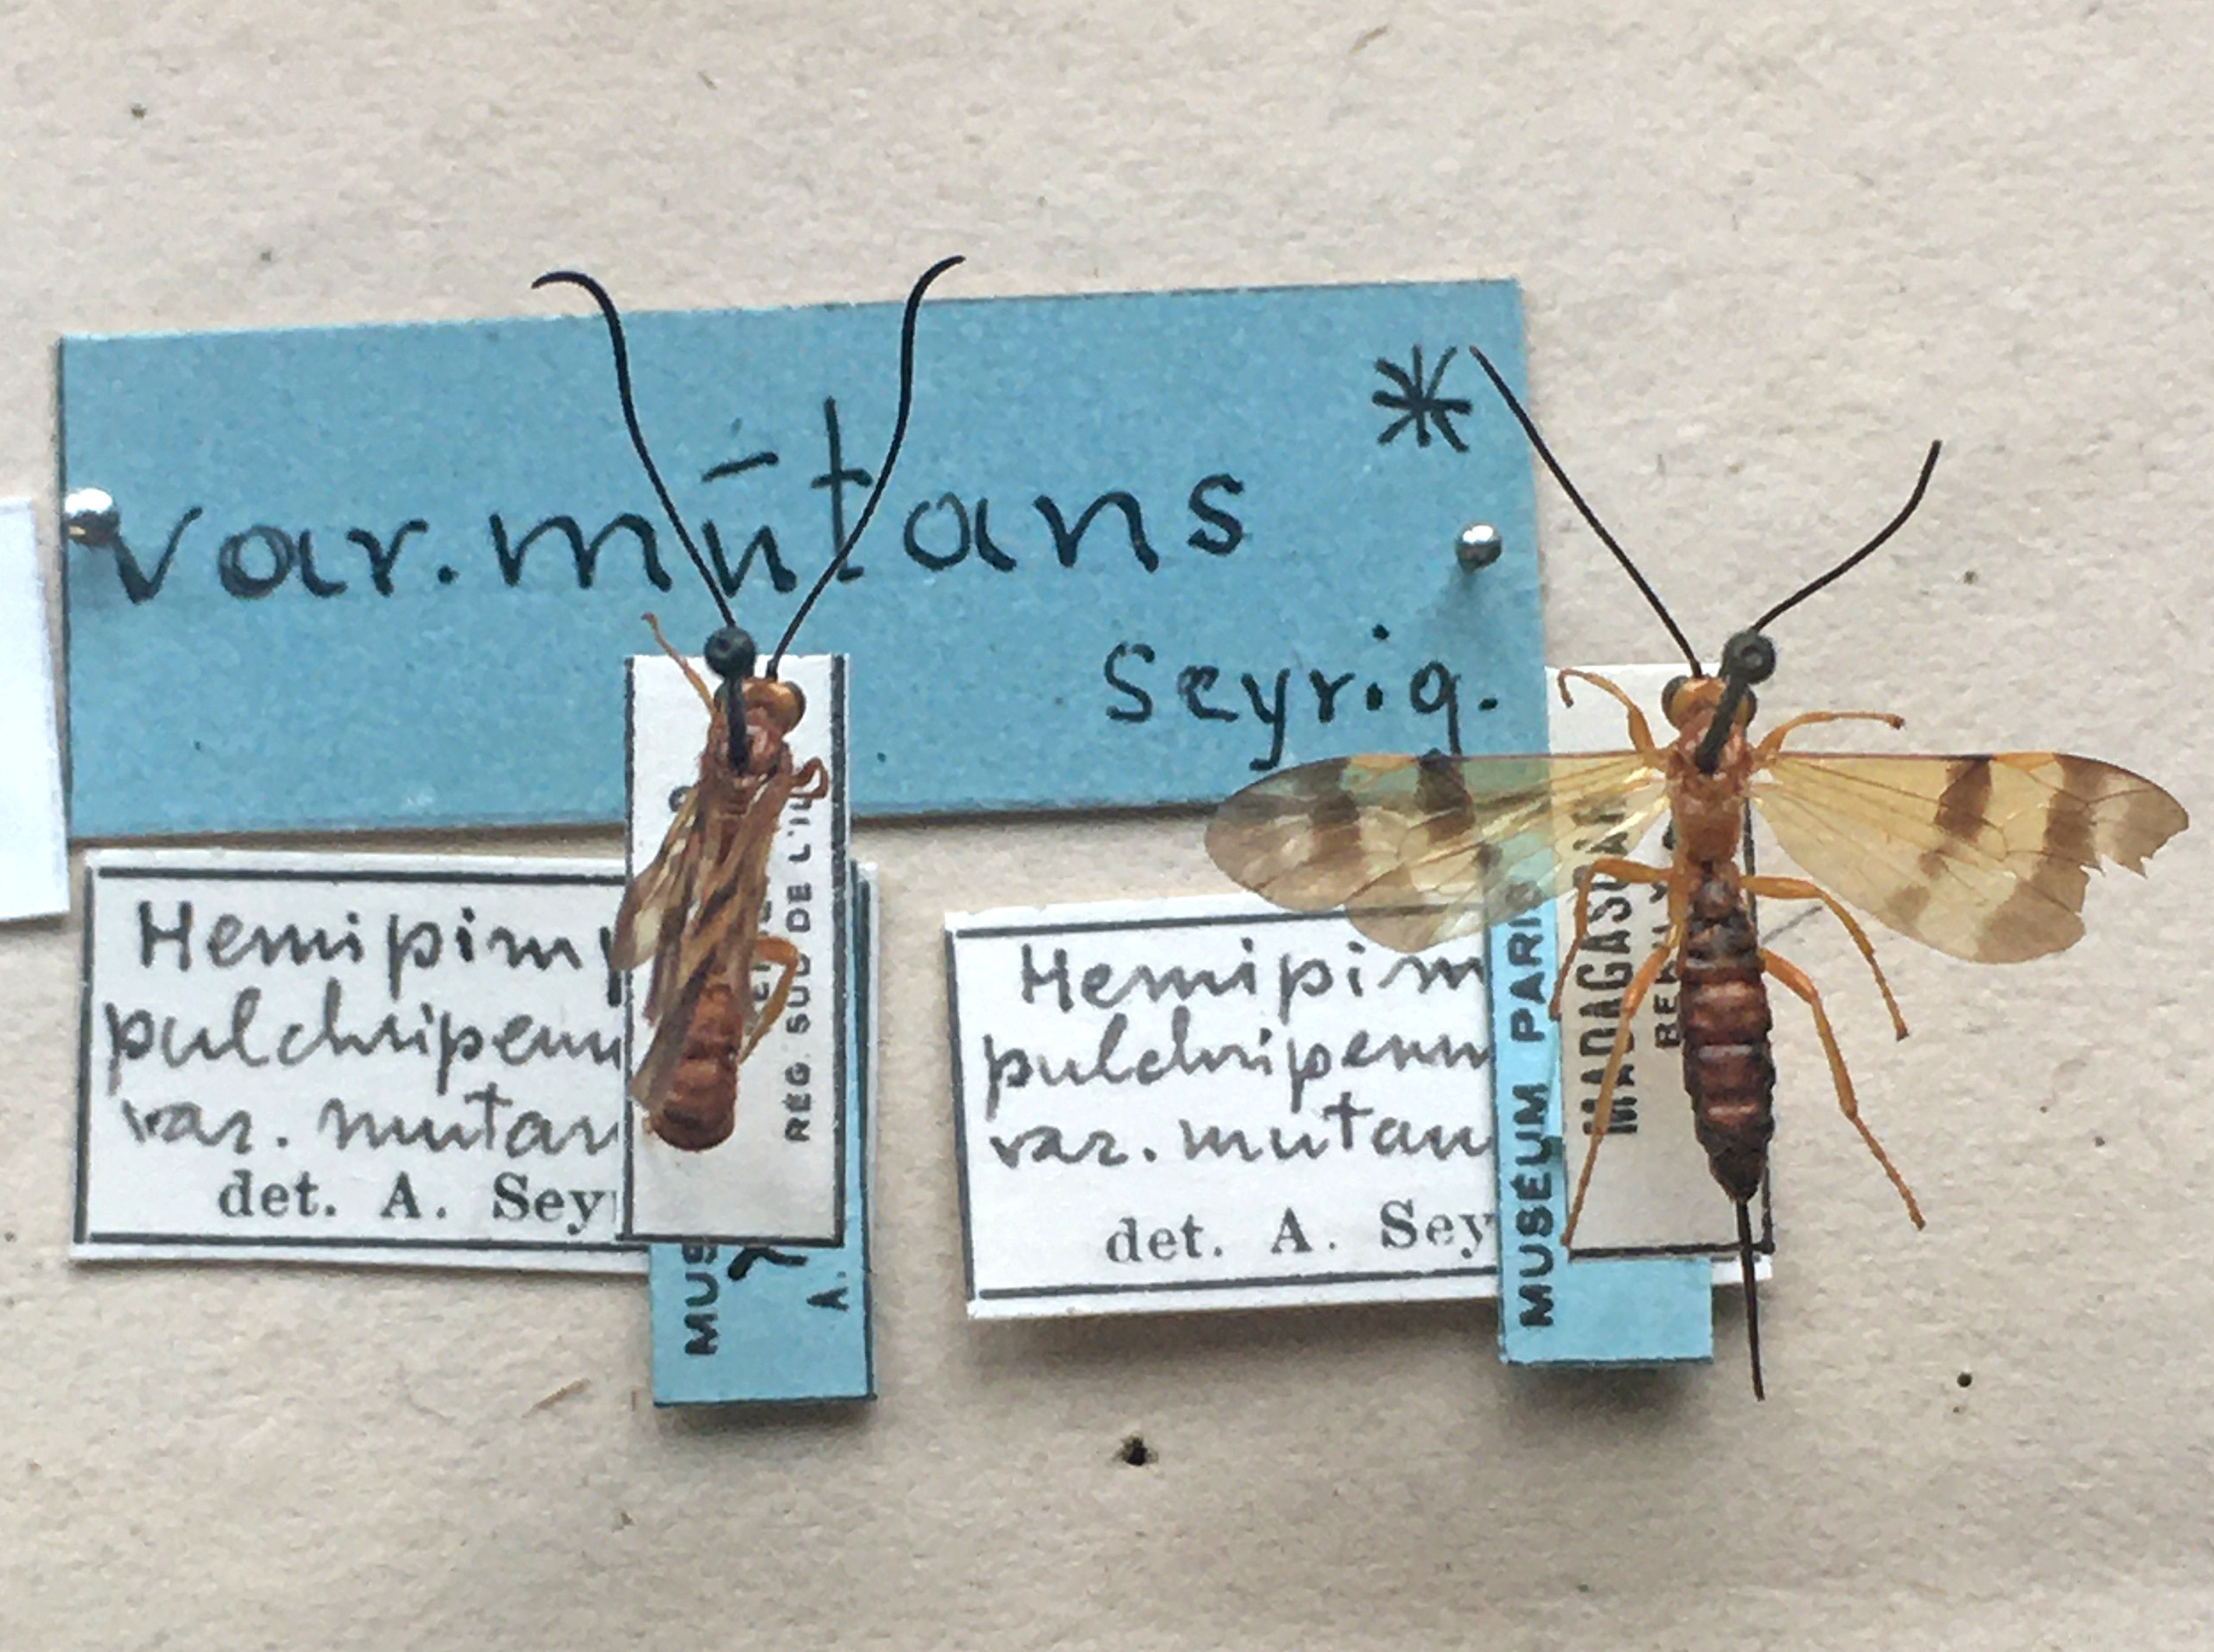 var. mutans *
Seyrig.
Hemipim
pulchripenn
var. mutan
det. A. Sey
RÉG. SUD DE L'ÎL
MUS
A.
Hemipim
pulchripenn
var. mutan
det. A. Sey
MUSÉUM PARIS
MADAGASCAR
BEK